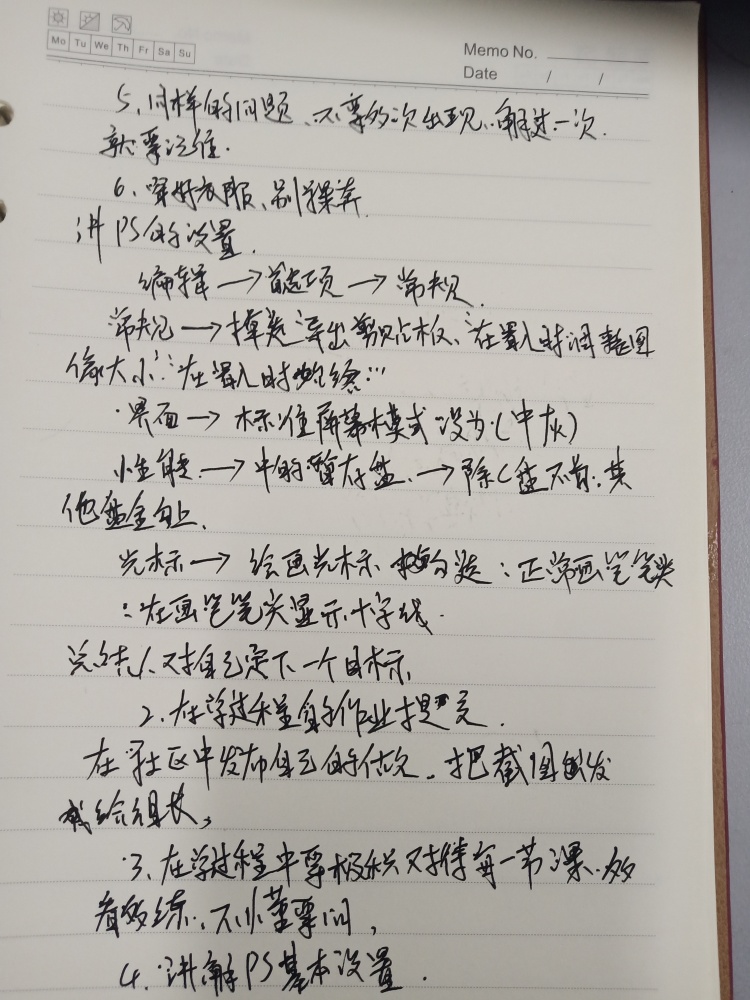 Mo Tu We Th Fr Sa Su
Memo No.
Date / /
5、同样的问题、不要多次出现、解过一次.
就要记住.
6、穿好衣服、别裸奔.
讲PS的设置.
编辑→首选项→常规.
常规→掉选导出剪贴板、:在置入时调整图
像大小:在置入时始终…
·界面→标准屏幕模式设为(中灰)
性能.→中的暂存盘.→除C盘不勾.其
他盘全勾上.
光标→绘画光标 勾选:正常画笔笔尖
:在画笔笔尖显示十字线.
总结1、对自己定下一个目标,
2、在学过程的作业提交.
在社区中发布自己的作文、把截图发
给组长,
3、在学过程中要极积对待每一节课.多
看多练、不懂要问,
4、讲解PS基本设置.